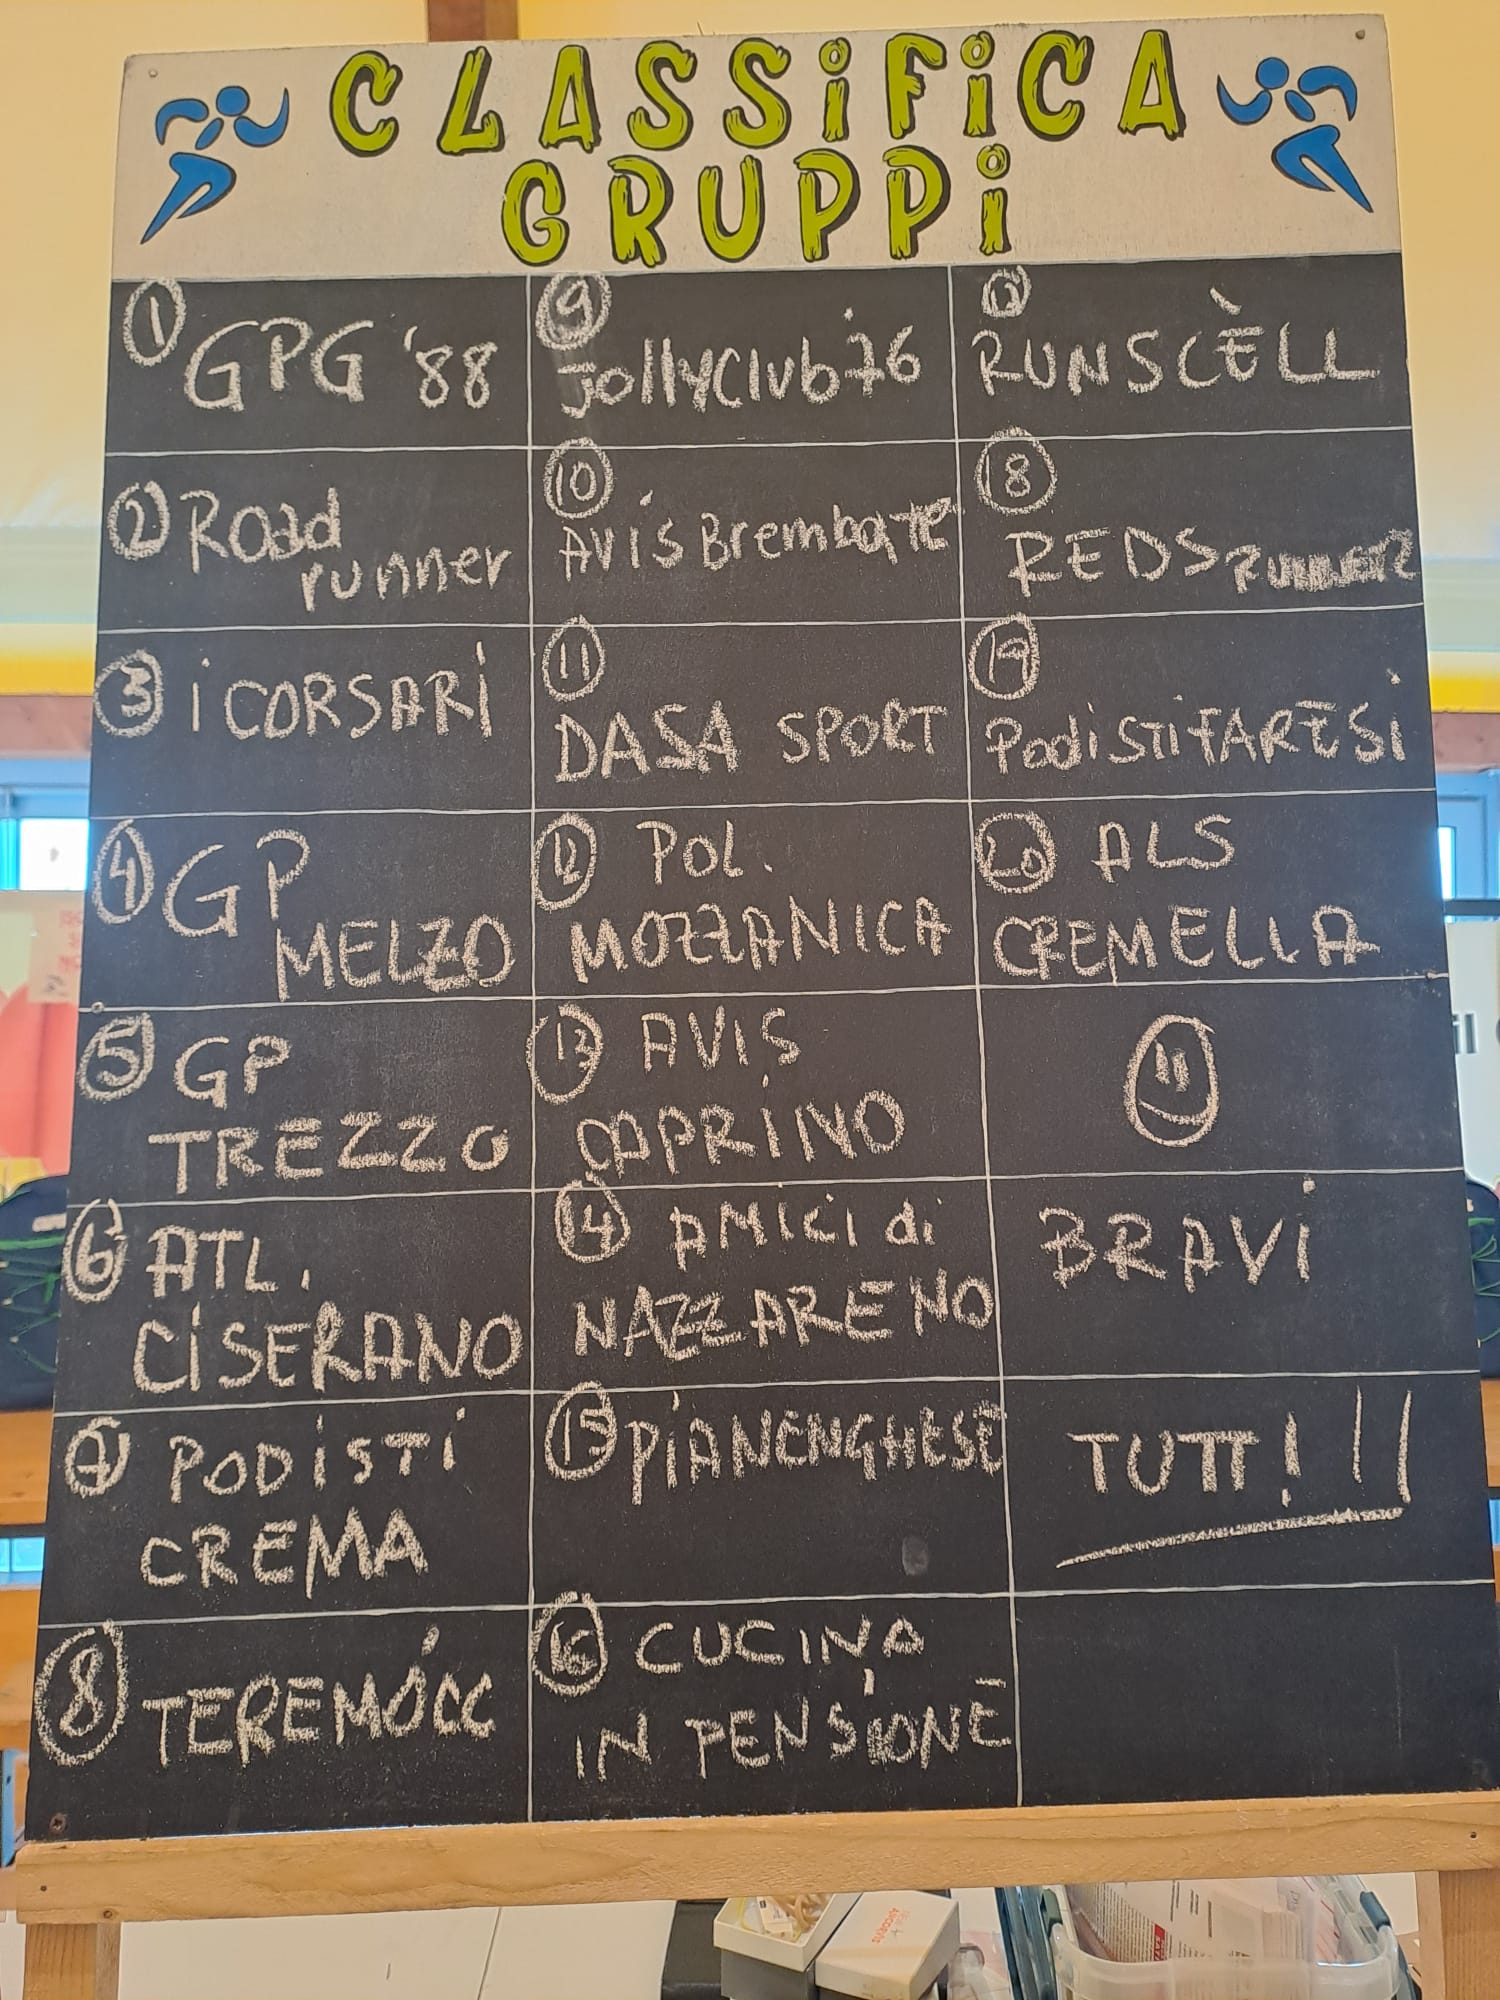 CLASSiFiCA
GRUPPi
1 GPG '88
2 Road
runner
3 i CORSARi
4 GP
MELZO
5 GP
TREZZO
6 ATL.
CiSERANO
7 PODiSTi
CREMA
8 TEREMÓCC
9
JollyClub 76
10
AViS Brembate
11
DASA SPORT
12 POL.
MOZZANICA
13 AViS
CAPRiNO
14 AMiCi di
NAZZARENO
15 PiANENGHESE
16 CUCINA
IN PENSIONE
RUNSCÈLL
18
REDS RUNNER
19
PodiSTi FARESi
20 ALS
CREMELLA
BRAVi
TUTTI!!!